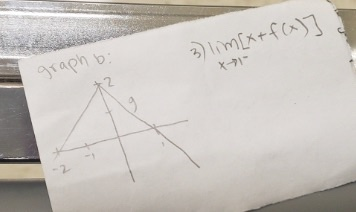 graph b:
3) lim[x+f(x)]
x→1⁻
2
g
-2 -1 1